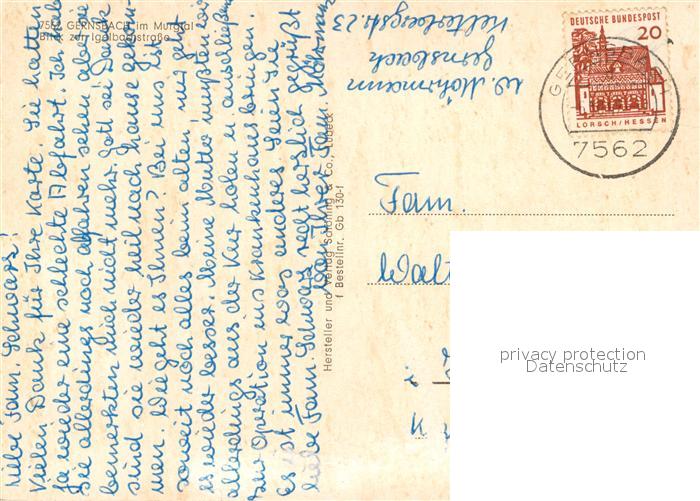 7562 GERNSBACH im Murgtal
Blick zur Igelbachstraße
Liebe Fam. Schwarz!
Vielen Dank für Ihre Karte. Sie hatten
ja wieder eine schlechte Abfahrt. Ich habe
Sie allerdings noch abfahren sehen, aber Sie
bemerkten mich nicht mehr. Gott sei Danke
sind sie wieder heil nach Hause gekom-
men. Wie geht es Ihnen? Bei uns ist
soweit noch alles beim alten, mir geht
es wieder besser. Meine Mutter mußten wir
allerdings aus der Kur holen u. anschließend
zur Operation ins Krankenhaus bringen.
Es ist immer was anderes. Seien Sie
liebe Fam. Schwarz recht herzlich gegrüßt
von Ihrer Fam. Möhrmann
Hersteller und Verlag Schöning & Co., Lübeck
Bestellnr. Gb 130-f
W. Möhrmann
Gernsbach
Kelterbergstr. 23
DEUTSCHE BUNDESPOST
20
LORSCH/HESSEN
7562
Fam.
privacy protection
Datenschutz